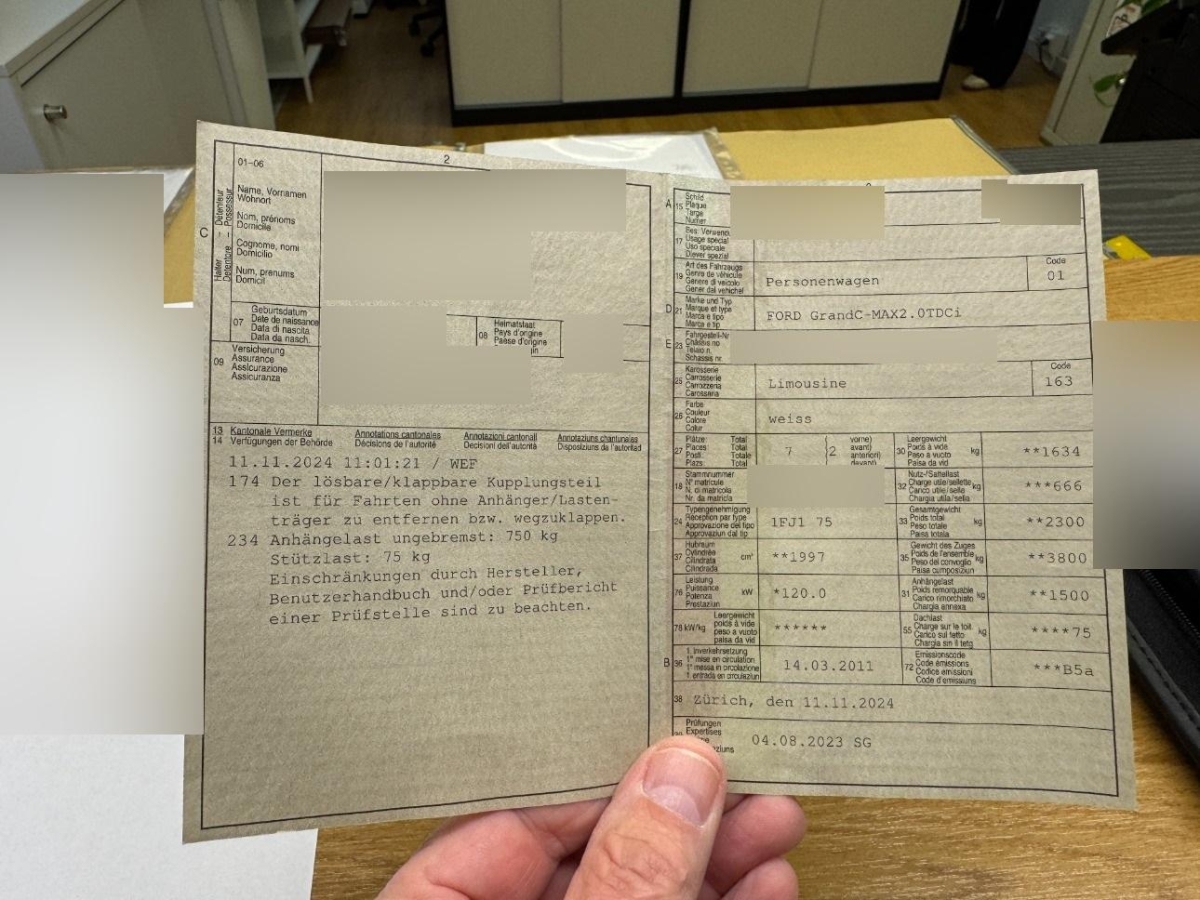 2
01-06
Name, Vornamen
Wohnort
Nom, prénoms
Domicile
Cognome, nomi
Domicilio
Num, prenums
Domicil
C
Halter – Détenteur
Detentore – Possessur
07
Geburtsdatum
Date de naissance
Data di nascita
Data da nasch.
08
Heimatstaat
Pays d'origine
Paese d'origine
09
Versicherung
Assurance
Assicurazione
Assicuranza
13 Kantonale Vermerke Annotations cantonales Annotazioni cantonali Annotaziuns chantunalas
14 Verfügungen der Behörde Décisions de l'autorité Decisioni dell'autorità Disposiziuns da l'autoritad
11.11.2024 11:01:21 / WEF
174 Der lösbare/klappbare Kupplungsteil
ist für Fahrten ohne Anhänger/Lasten-
träger zu entfernen bzw. wegzuklappen.
234 Anhängelast ungebremst: 750 kg
Stützlast: 75 kg
Einschränkungen durch Hersteller,
Benutzerhandbuch und/oder Prüfbericht
einer Prüfstelle sind zu beachten.
A 15
Schild
Plaque
Targa
Numer
17
Bes. Verwend.
Usage spécial
Uso speciale
Diever spezial
19
Art des Fahrzeugs
Genre de véhicule
Genere di veicolo
Gener dal vehichel
Personenwagen
Code
01
D 21
Marke und Typ
Marque et type
Marca e tipo
Marca e tip
FORD GrandC-MAX2.0TDCi
E 23
Fahrgestell-Nr
Châssis no
Telaio n.
Schassis nr.
25
Karosserie
Carrosserie
Carrozzeria
Carossaria
Limousine
Code
163
26
Farbe
Couleur
Colore
Colur
weiss
27
Plätze Total
Places Total
Posti Totale
Plazs Totale
7
2
vorne)
avant)
anteriori)
davant)
30
Leergewicht
Poids à vide
Peso a vuoto
Paisa da vid
kg
**1634
18
Stammnummer
N° matricule
N. di matricola
Nr. da matricla
32
Nutz-/Sattellast
Charge utile/sellette
Carico utile/sella
Chargia utila/sella
kg
***666
24
Typengenehmigung
Réception par type
Approvazione del tipo
Approvaziun dal tip
1FJ1 75
33
Gesamtgewicht
Poids total
Peso totale
Paisa totala
kg
**2300
37
Hubraum
Cylindrée
Cilindrata
Cilindrada
cm³
**1997
35
Gewicht des Zuges
Poids de l'ensemble
Peso del convoglio
Paisa cumposiziun
kg
**3800
76
Leistung
Puissance
Potenza
Prestaziun
kW
*120.0
31
Anhängelast
Poids remorquable
Carico rimorchiato
Chargia annexa
kg
**1500
78 kW/kg
Leergewicht
poids à vide
peso a vuoto
paisa da vid
******
55
Dachlast
Charge sur le toit
Carico sul tetto
Chargia sin il tetg
kg
****75
B 36
1. Inverkehrsetzung
1re mise en circulation
1a messa in circolazione
1. entrada en circulaziun
14.03.2011
72
Emissionscode
Code émissions
Codice emissioni
Code d'emissiuns
***B5a
38 Zürich, den 11.11.2024
Prüfungen
Expertises
04.08.2023 SG